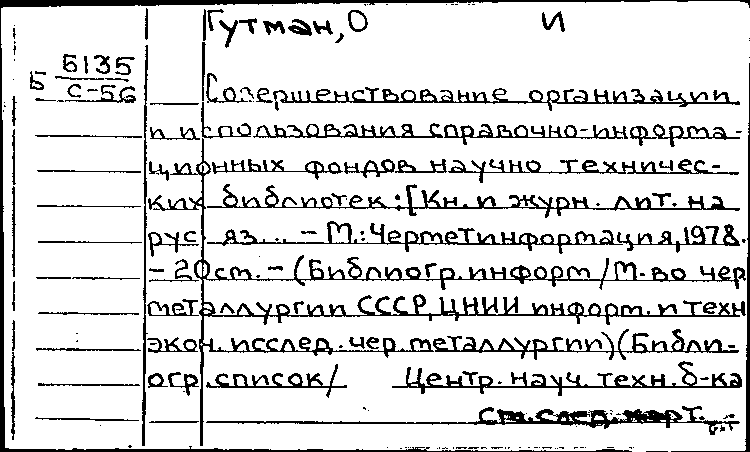 Гутман, О И
Б Б135
С-56
Совершенствование организации
и использования справочно-информа-
ционных фондов научно техничес-
ких библиотек: [Кн. и журн. лит. на
рус. яз... - М.: Черметинформация, 1978.
- 20 см. - (Библиогр. информ / М-во чер
металлургии СССР, ЦНИИ информ. и техн
экон. исслед. чер. металлургии) (Библи-
огр. список / Центр. науч. техн. б-ка
см. след. карт.